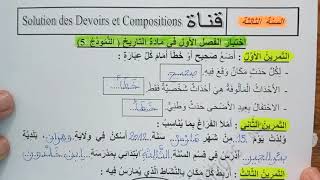 Solution des Devoirs et Compositions قناة السنة الثالثة
اختبار الفصل الأول في مادة التاريخ ( النموذج 5 )
التمرين الأول : أضع صحيح أو خطأ أمام كل عبارة :
- لكل حدث مكان وقع فيه. صحيح
- الأحداث المألوفة هي الأحداث الشخصية فقط . خطأ
- الاحتفال بعيد الأضحى حدث شخصي. خطأ
التمرين الثاني : أملأ الفراغ بما يناسب :
ولدت يوم 15 من شهر مارس سنة 2012 أسكن في ولاية وهران، بلدية
أدرس في قسم السنة الثالثة ابتدائي بمدرسة
التمرين الثالث : أربط كل مكان بالنشاط الذي يمارس فيه